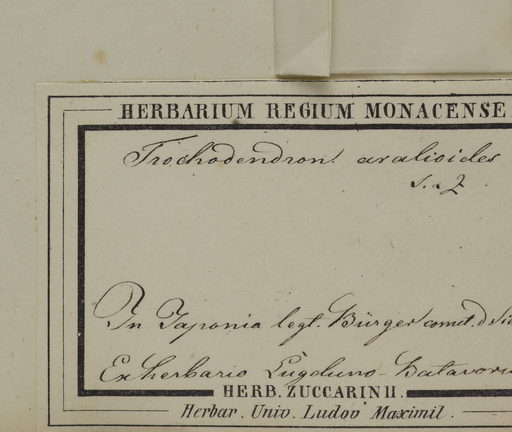 HERBARIUM REGIUM MONACENSE.
Trochodendron aralioides
S. & Z.
In Japonia legt. Bürger comt. D Sie
Ex herbario Lugduno-Batavoru
HERB. ZUCCARINII.
Herbar. Univ. Ludov Maximil.